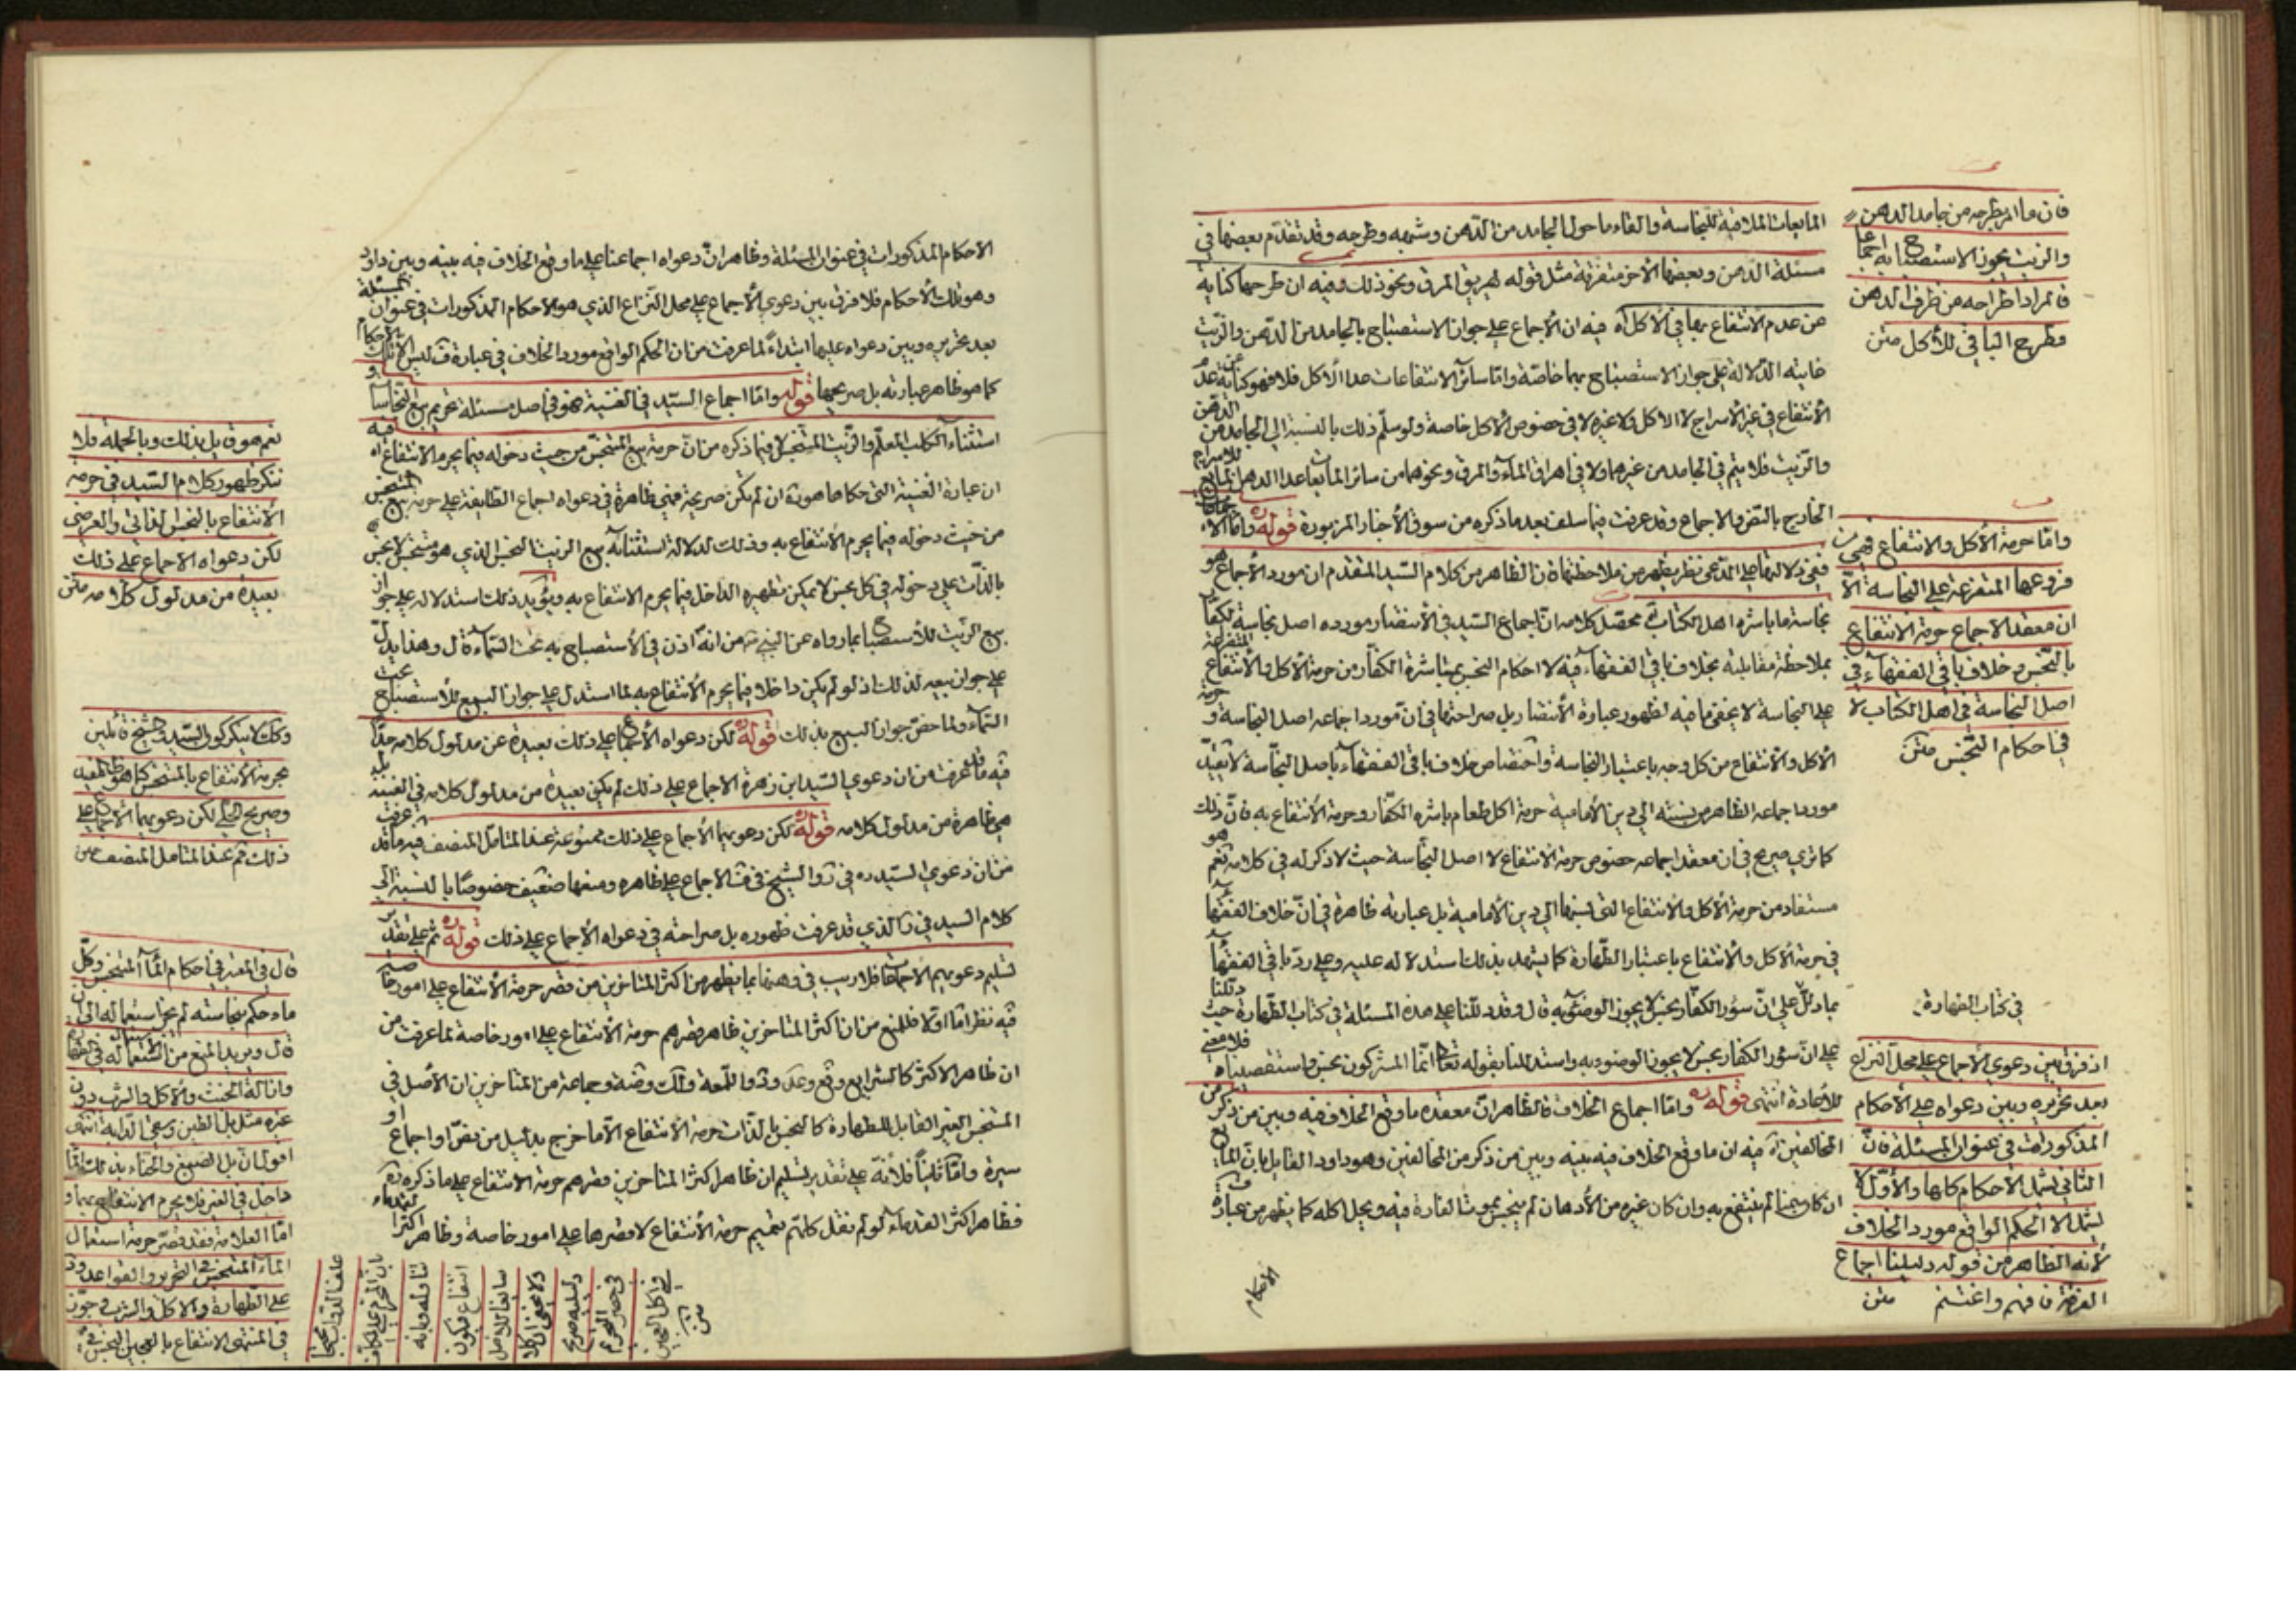 المايعات الملاقية للنجاسة والقاء ما حول الجامد من الدهن وشبهه وطرحه وقد تقدم بعضها في
مسئلة الدهن وبعضها الآخر متفرقة مثل قوله يهريق المرق ونحو ذلك وفيه ان طرحها كناية
عن عدم الانتفاع بها في الاكل اه فيه ان الاجماع على جواز الاستصباح بالجامد من الدهن والزيت
غايته الدلالة على جواز الاستصباح بهما خاصة واما سائر الانتفاعات عدا الاكل فلا فهو كناية عن عدم
الانتفاع في غير الاسراج لا الاكل ولا غيره لا في خصوص الاكل خاصة ولو سلم ذلك بالنسبة الى الجامد من الدهن
والزيت فلا يتم في الجامد من غيرهما ولا في اهراق الماء والمرق ونحوهما من سائر المايعات عدا الدهن المايع للاسراج
الخارج بالنص والاجماع وقد عرفت فيما سلف بعد ما ذكره من سوق الاخبار المزبورة قوله ره واما الاجماعات
ففي دلالتها على المدعى نظر يظهر من ملاحظتها فان الظاهر من كلام السيد المتقدم ان مورد الاجماع هو
نجاسة ما باشره اهل الكتاب محصل كلامه ان اجماع السيد في الانتصار مورده اصل نجاسة الكفار
بملاحظة مقابلته بخلاف باقي الفقهاء فيه لا احكام النجس بمباشرة الكفار من حرمة الاكل والانتفاع المتفرعة
على النجاسة لا يخفى ما فيه لظهور عبارة الانتصار بل صراحتها في ان مورد اجماعه اصل النجاسة وحرمة
الاكل والانتفاع من كل وجه باعتبار النجاسة واختصاص خلاف باقي الفقهاء باصل النجاسة لا يقيد
مورد اجماعه الظاهر من نسبته الى دين الامامية حرمة اكل طعام باشره الكفار وحرمة الانتفاع به فان ذلك
كما ترى صريح في ان معقد اجماعه خصوص حرمة الانتفاع لا اصل النجاسة حيث لا ذكر له في كلامه نعم هو
مستفاد من حرمة الاكل والانتفاع التي نسبها الى دين الامامية بل عبارته ظاهرة في ان خلاف الفقهاء
في حرمة الاكل والانتفاع باعتبار الطهارة كما يشهد بذلك استدلاله عليه وعلى رد باقي الفقهاء
بما دل على ان سؤر الكفار نجس لا يجوز الوضوء به قال وقد دللنا على هذه المسئلة في كتاب الطهارة حيث دللنا
على ان سؤر الكفار نجس لا يجوز الوضوء به واستدللنا بقوله تعالى انما المشركون نجس واستقصيناه فلا معنى
للاعادة انتهى قوله ره واما اجماع الخلاف فالظاهر ان معقده ما وقع الخلاف فيه وبين من ذكر من
المخالفين اه فيه ان ما وقع الخلاف فيه بينه وبين من ذكر من المخالفين وهو داود القايل بان المايع
ان كان سمنا لم ينتفع به وان كان غيره من الأدهان لم ينجس بموت الفارة فيه ويحل اكله كما يظهر من عبارة ف
الاحكام
فان ما امر بطرحه من جامد الدهن
والزيت يجوز الاستصباح به اجماعا
فالمراد اطراحه من ظرف الدهن
وطرح الباقي للأكل متن
واما حرمة الاكل والانتفاع فهي من
فروعها المتفرعة على النجاسة لا
ان معقد الاجماع حرمة الانتفاع
بالنجس وخلاف باقي الفقهاء في
اصل النجاسة في اهل الكتاب لا
في احكام النجس متن
في كتاب الطهارة
اذ فرق بين دعوى الاجماع على محل النزاع
بعد تحريره وبين دعواه على الاحكام
المذكورات في عنوان المسئلة فان
الثاني يشمل الاحكام كلها والاول لا
يشمل الا الحكم الواقع مورد الخلاف
لأنه الظاهر من قوله دليلنا اجماع
الفرقة فافهم واغتنم متن
الاحكام المذكورات في عنوان المسئلة وظاهر ان دعواه اجماعنا على ما وقع الخلاف فيه بينه وبين داود
وهو تلك الاحكام فلا فرق بين دعوى الاجماع على محل النزاع الذي هو الاحكام المذكورات في عنوان المسئلة
بعد تحريره وبين دعواه عليها ابتداء لما عرفت من ان الحكم الواقع مورد الخلاف في عبارة ف ليس الا تلك الاحكام
كما هو ظاهر عبارته بل صريحها قوله واما اجماع السيد في الغنية فهو في اصل مسئلة تحريم بيع النجاسات و
استثناء الكلب المعلم والزيت المتنجس لا فيما ذكره من ان حرمة بيع المتنجس من حيث دخوله فيما يحرم الانتفاع اه فيه
ان عبارة الغنية التي حكاها هو ره ان لم يكن صريحة فهي ظاهرة في دعواه اجماع الطايفة على حرمة بيع المتنجس
من حيث دخوله فيما يحرم الانتفاع به وذلك لدلالة استثنائه بيع الزيت النجس الذي هو متنجس لا نجس
بالذات على دخوله في كل نجس لا يمكن تطهيره الداخل فيما يحرم الانتفاع به ويؤيد ذلك استدلاله على جواز
بيع الزيت للاستصباح بما رواه عن النبي ص من انه اذن في الاستصباح به تحت السماء قال وهذا يدل
على جواز بيعه لذلك اذ لو لم يكن داخلا فيما يحرم الانتفاع به لما استدل على جواز البيع للاستصباح تحت
السماء ولما خص جواز البيع بذلك قوله ره لكن دعواه الاجماع على ذلك بعيدة عن مدلول كلامه جدا
فيه ما قد عرفت من ان دعوى السيد ابن زهرة الاجماع على ذلك لم يكن بعيدة من مدلول كلامه في الغنية بل
هي ظاهرة من مدلول كلامه قوله ره لكن دعويهما الاجماع على ذلك ممنوعة عند المتأمل المنصف فيه ما قد عرفت
من ان دعوى السيد ره في ر والشيخ في ف الاجماع على ظاهره ومنعها ضعيف خصوصا بالنسبة الى
كلام السيد في ر الذي قد عرفت ظهوره بل صراحته في دعواه الاجماع على ذلك قوله ره ثم على تقدير
تسليم دعويهم الاجماعات فلا ريب في وهنها بما يظهر من اكثر المتأخرين من قصر حرمة الانتفاع على امور خاصة
فيه نظر اما اولا فللمنع من ان اكثر المتأخرين ظاهر قصرهم حرمة الانتفاع على امور خاصة لما عرفت من
ان ظاهر الاكثر كالشرايع وقع وعد وثوا للمعة ولك وضه وجماعة من المتأخرين ان الأصل في
المتنجس الغير القابل للطهارة كالنجس بالذات حرمة الانتفاع الا ما خرج بدليل من نص او اجماع او
سيرة واما ثانيا فلأنه على تقدير تسليم ان ظاهر اكثر المتأخرين قصرهم حرمة الانتفاع على ما ذكره نعم
فظاهر اكثر القدماء لو لم نقل كلهم تعميم حرمة الانتفاع لا قصرها على امور خاصة وظاهر اكثر القدماء
نعم هو قايل بذلك وبالجملة فلا
ننكر ظهور كلام السيد في حرمة
الانتفاع بالنجس الذاتي والعرضي
لكن دعواه الاجماع على ذلك
بعيدة من مدلول كلامه متن
وكذلك لا ينكر كون السيد والشيخ قائلين
بحرمة الانتفاع بالمتنجس كما هو ظاهر المفيد
وصريح الحلي لكن دعويهما الاجماع على
ذلك ثم عند المتامل المنصف متن
قال في المعتبر في احكام الماء المتنجس وكل
ماء حكم بنجاسته لم يجز استعماله الى ان
قال ويريد بالمنع من استعماله في الطهارة
وازالة الخبث والاكل والشرب دون
غيره مثل بل الطين وسقي الدابة انتهى
اقول ان بل الصبغ والحناء بذلك الماء
داخل في الغير فلا يحرم الانتفاع بهما و
اما العلامة فقد قصر حرمة استعمال
الماء المتنجس في التحرير والقواعد
على الطهارة والاكل والشرب وجوز
في المنتهى الانتفاع بالعجين النجس في
علف الدواب محتجا
بان المحرم على المكلف
تناوله وبانه
انتفاع فيكون
سايغا للاصل
ولا يخفى ان كلا
دليليه صريح
في حصر التحريم
في اكل العجين
متن